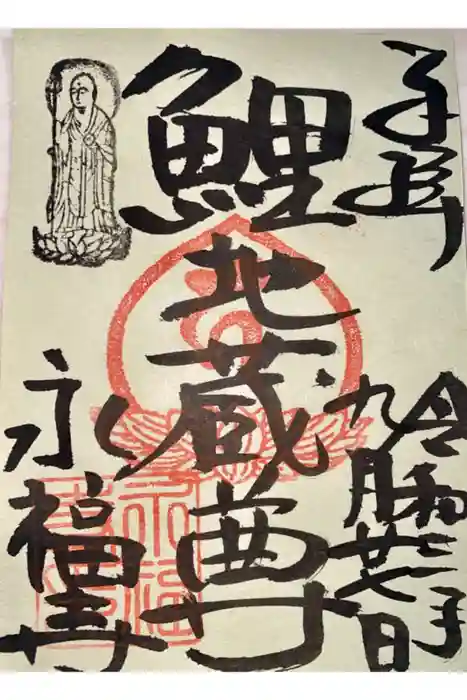 令和二年
九月廿七日
鯉地蔵尊
永福寺